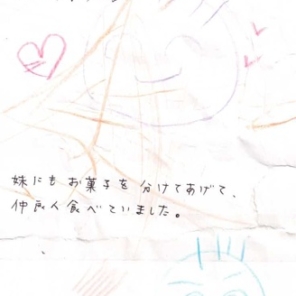 妹にもお菓子を分けてあげて、
仲良く食べていました。